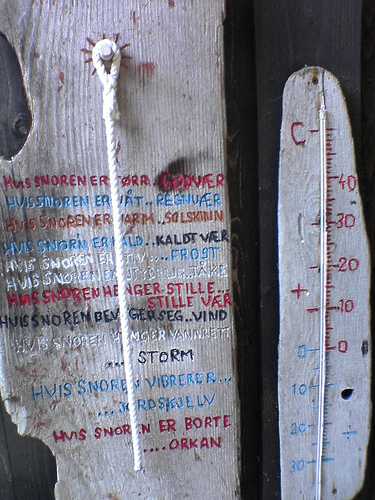 HVIS SNOREN ER TØRR.. GODVÆR
HVIS SNOREN ER VÅT.. REGNVÆR
HVIS SNOREN ER VARM.. SOLSKINN
HVIS SNORN ER KALD...KALDT VÆR
HVIS SNOREN ER STIV....FROST
HVIS SNOREN ER USYNLIG..TÅKE
HVIS SNOREN HENGER STILLE...
STILLE VÆR
HVIS SNOREN BEVEGER SEG..VIND
HVIS SNOREN HENGER VANNRETT
... STORM
HVIS SNOREN VIBRERER...
.... JORDSKJELV
HVIS SNOREN ER BORTE
.....ORKAN
C
40
30
20
+
10
0 0
10
20 ÷
30